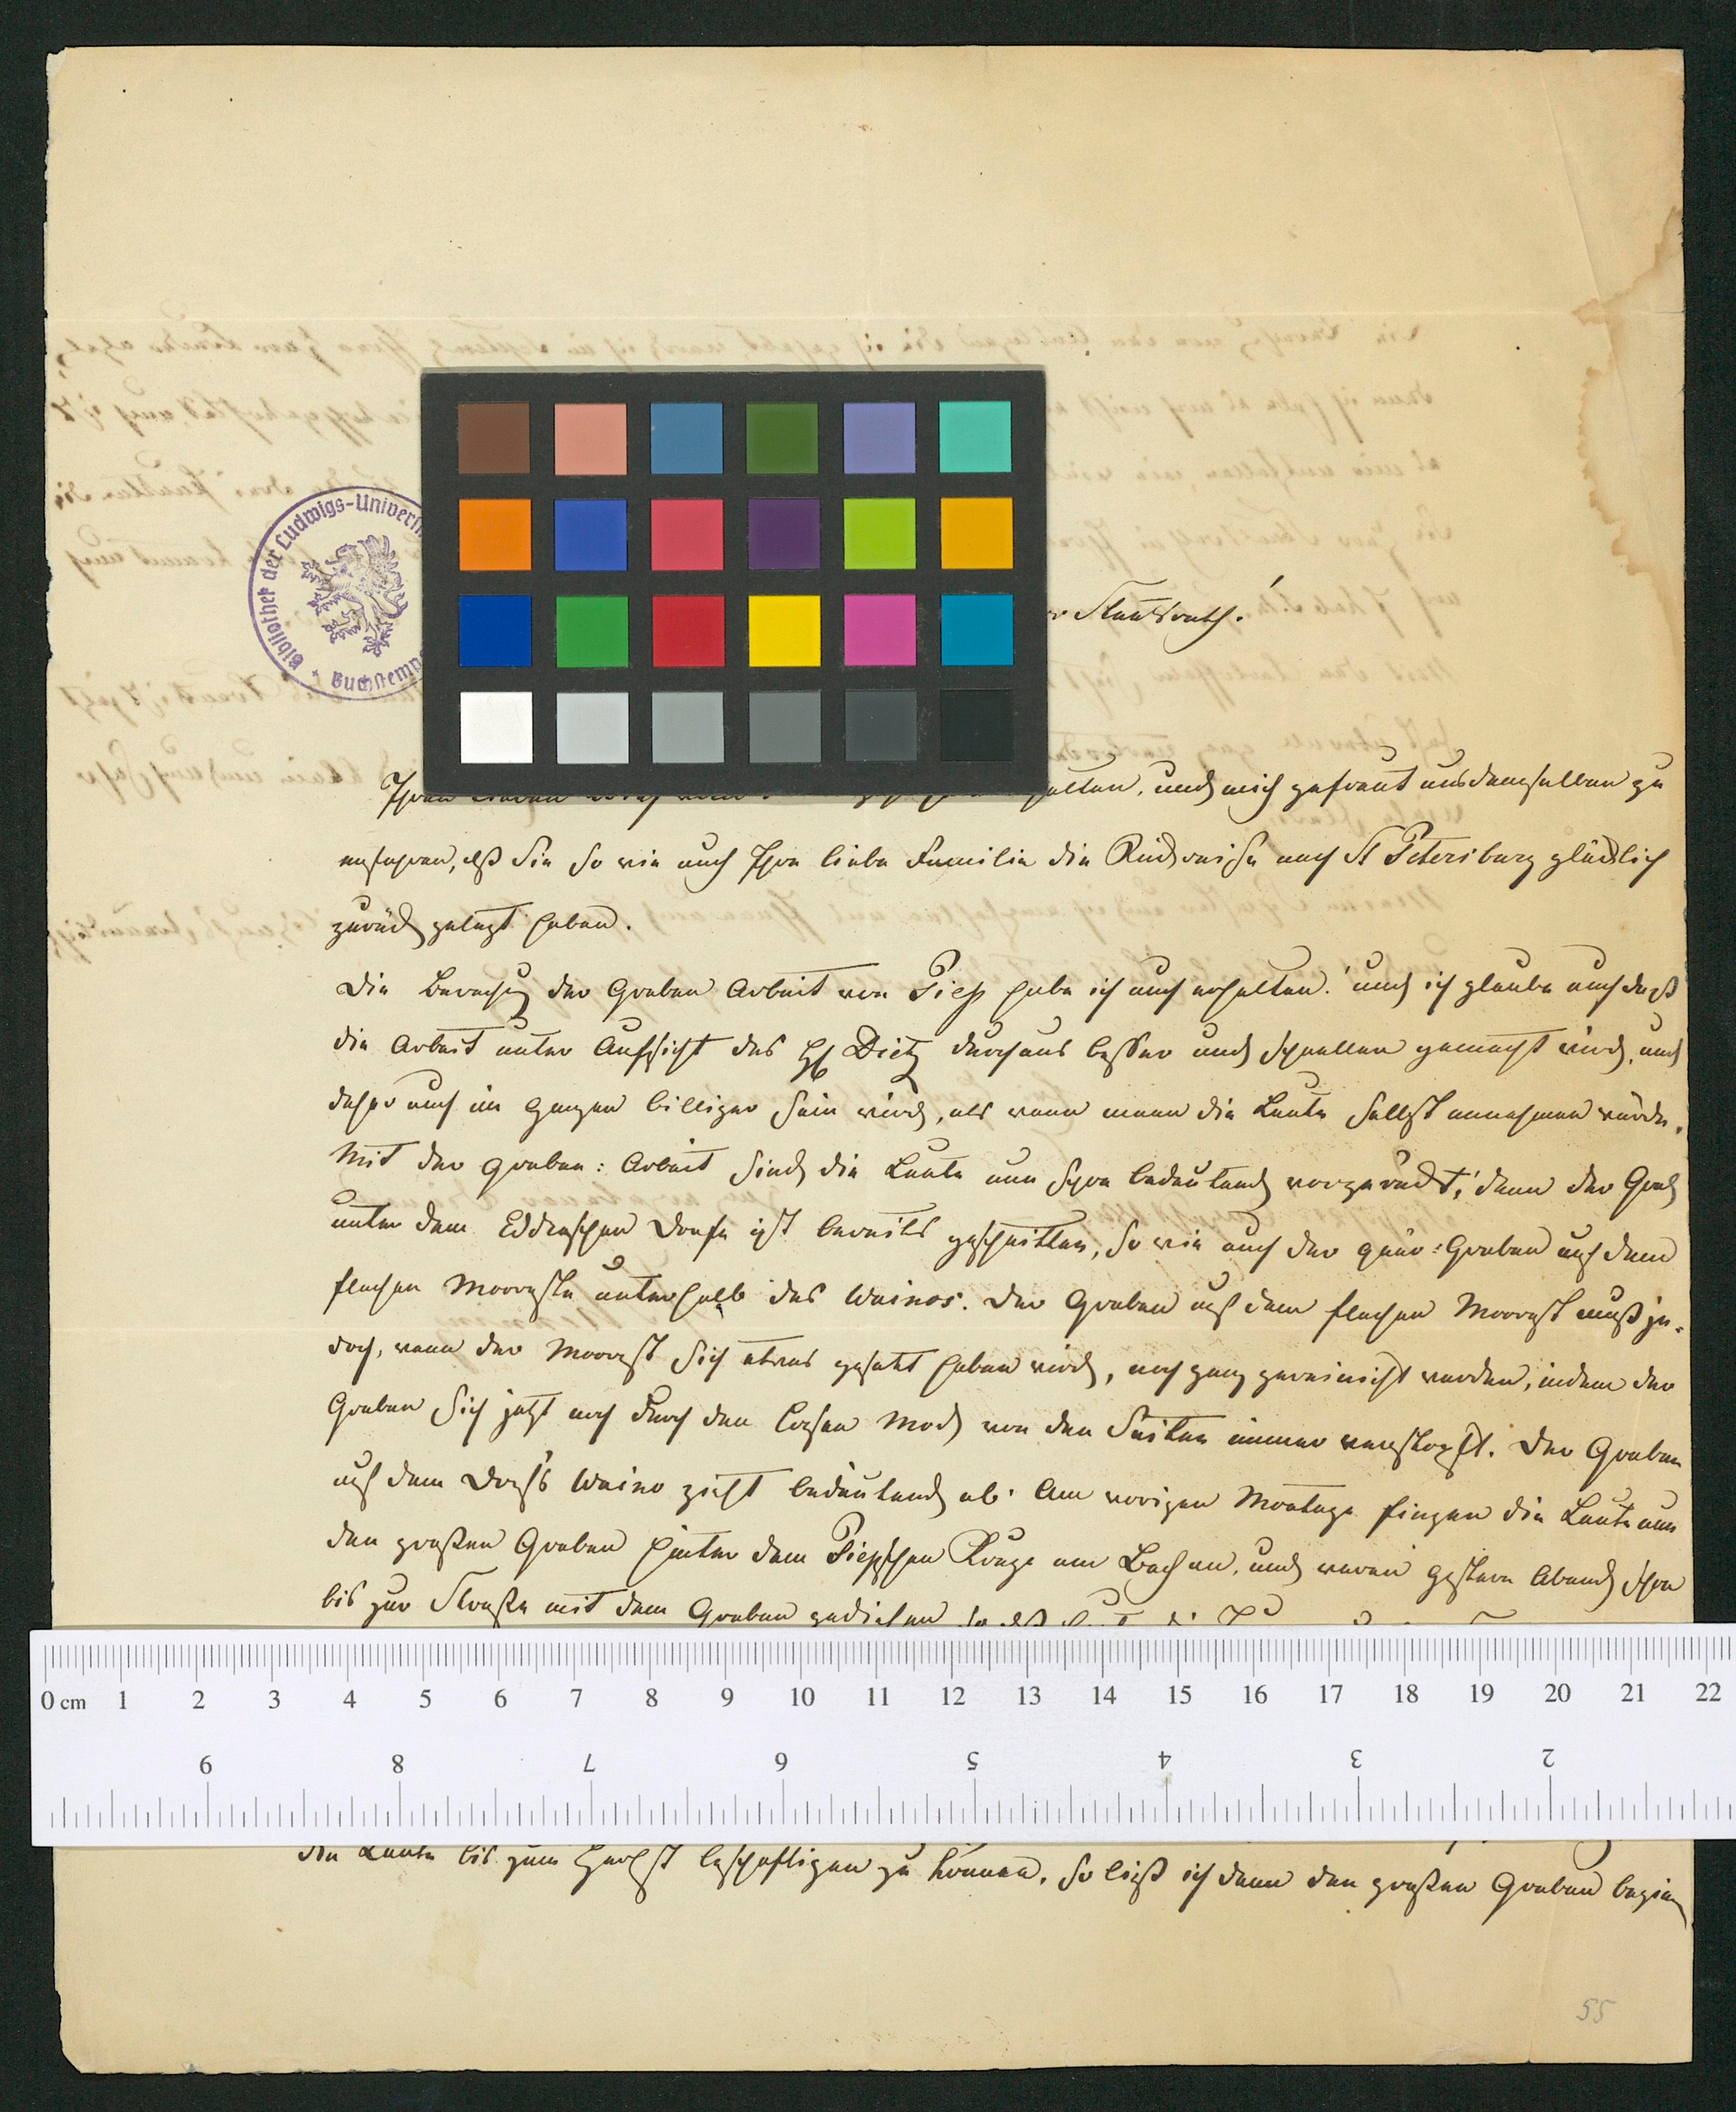 Bibliothek der Ludwigs-Univer
Staatsrath!
Ihren halten, und mich gefreut aus demselben zu
ersehen, dß Sie so wie auch Ihre liebe Familie die Rückreise nach St Petersburg glücklich
zurück gelegt haben.
Die Berechng der Graben Arbeit von Piep habe ich auch erhalten. und ich glaube auch daß
die Arbeit unter Aufsicht des H Dietz durchaus besser und schneller gemacht wird, und
daher auch im Ganzen billiger sein wird, als wenn mann die Leute selbst annehmen würde.
Mit der Graben: Arbeit sind die Leute nun schon bedeutend vorgerückt; denn der Grab
unter dem Eddaschen Dorfe ist bereits geschnitten, so wie auch der quer: Graben auf dem
flachen Morraste unterhalb des Wainos. Der Graben auf dem flachen Morrast muß je-
doch, wenn der Morrast sich etwas gesetzt haben wird, noch ganz gereinicht werden, indem der
Graben sich jetzt noch durch den losen Mod von den Seiten immer verstopft. Der Graben
auf dem Dorfs Waino zieht bedeutend ab. Am vorigen Montage fingen die Leute nun
den großen Graben hinter dem Piepschen Kruge am Bach an, und waren gestern Abend schon
bis zur Straße mit dem Graben gediehen so dß
0 cm 1 2 3 4 5 6 7 8 9 10 11 12 13 14 15 16 17 18 19 20 21 22
9 8 7 6 5 4 3 2
die Leute bis zum Herbst beschäftigen zu können. So ließ ich denn den großen Graben begin
55